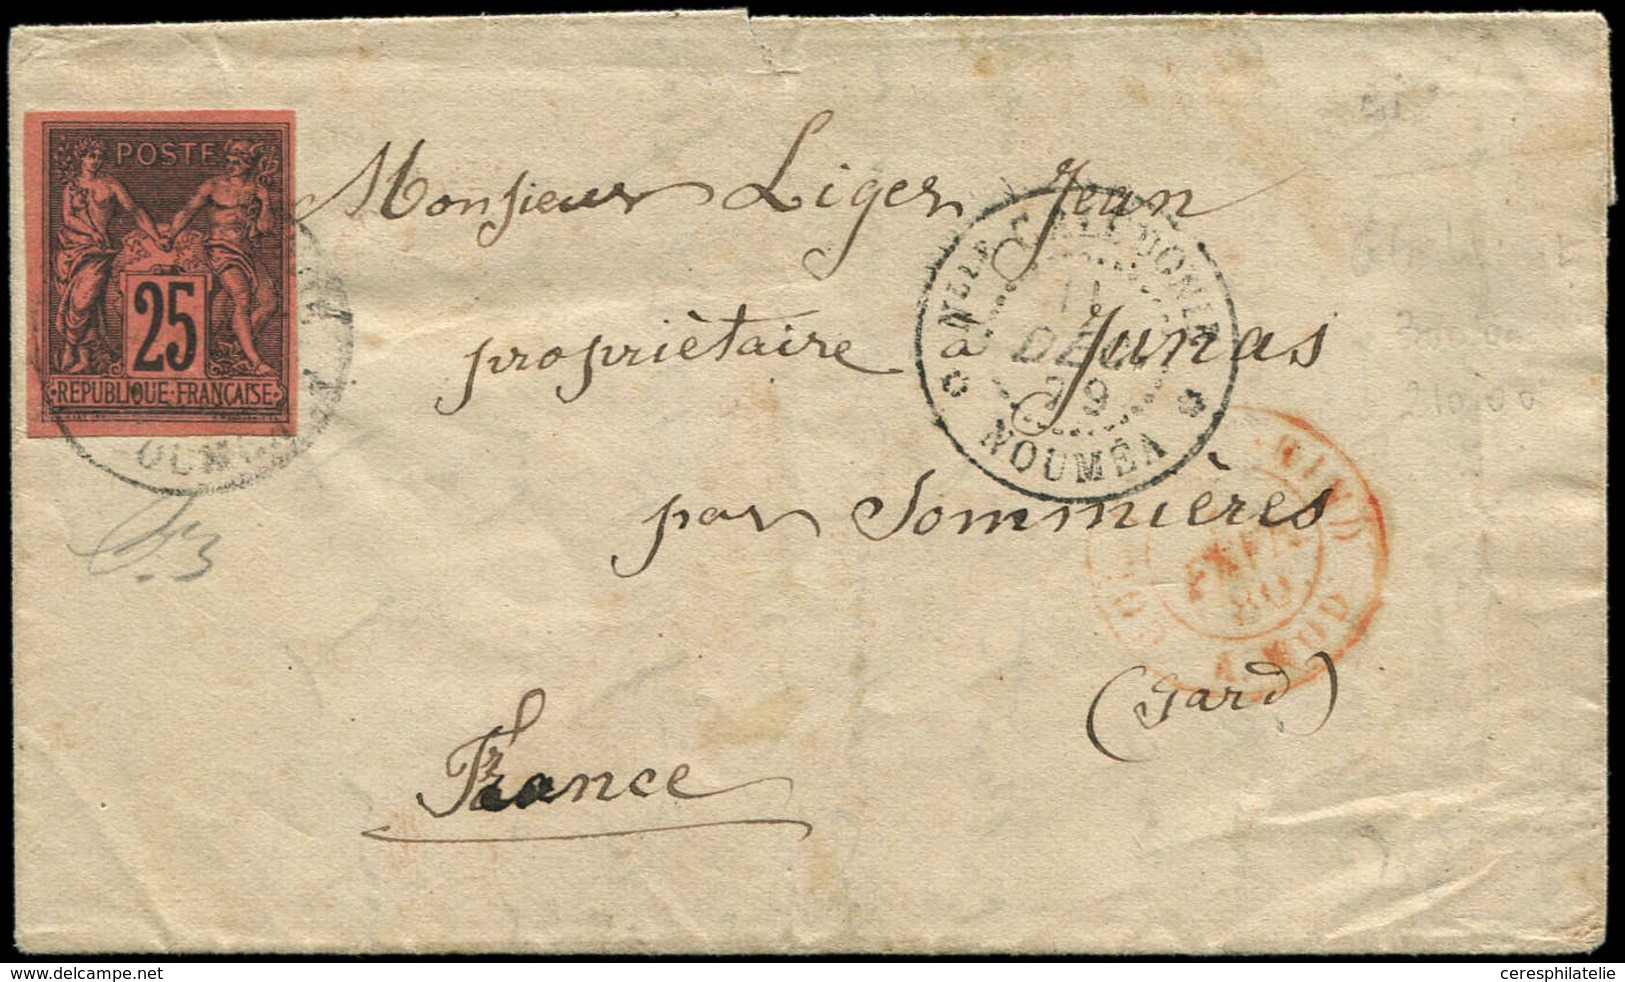 POSTE
25
REPUBLIQUE FRANÇAISE
Monsieur Liger Jean
propriètaire à Junas
par Sommières
(Gard)
France
Nlle CALEDONIE
11
DEC
79
NOUMÉA
ceresphilatelie